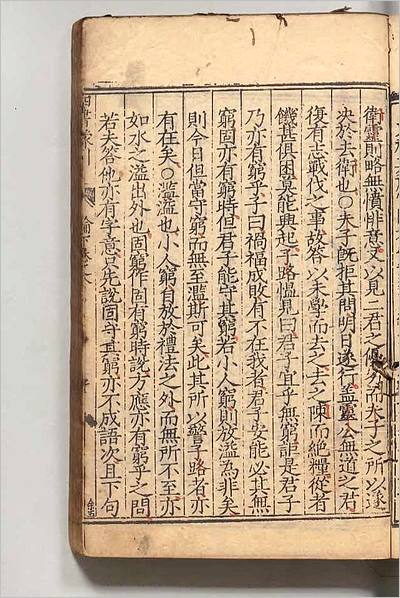 衛靈則略無憤悱意又以見二君之優劣而夫子之所以遂
決於去衛也○夫子既拒其問明日遂行蓋靈公無道之君
復有志戰伐之事故答以未學而去之去之陳而絕糧從者
饑甚俱困莫能興起子路慍見曰君子宜乎無窮詎是君子
乃亦有窮乎子曰禍福成敗有不在我者君子安能必其無
窮固亦有窮時但君子能守其窮若小人窮則放溢為非矣
則今日但當守窮而無至濫斯可矣此其所以警子路者亦
有在矣○濫溢也小人窮自放於禮法之外而無所不至亦
如水之溢出外也固窮作固有窮時說方應亦有窮乎之問
若夫答他亦有字意只先說固守其窮亦不成語次且下句